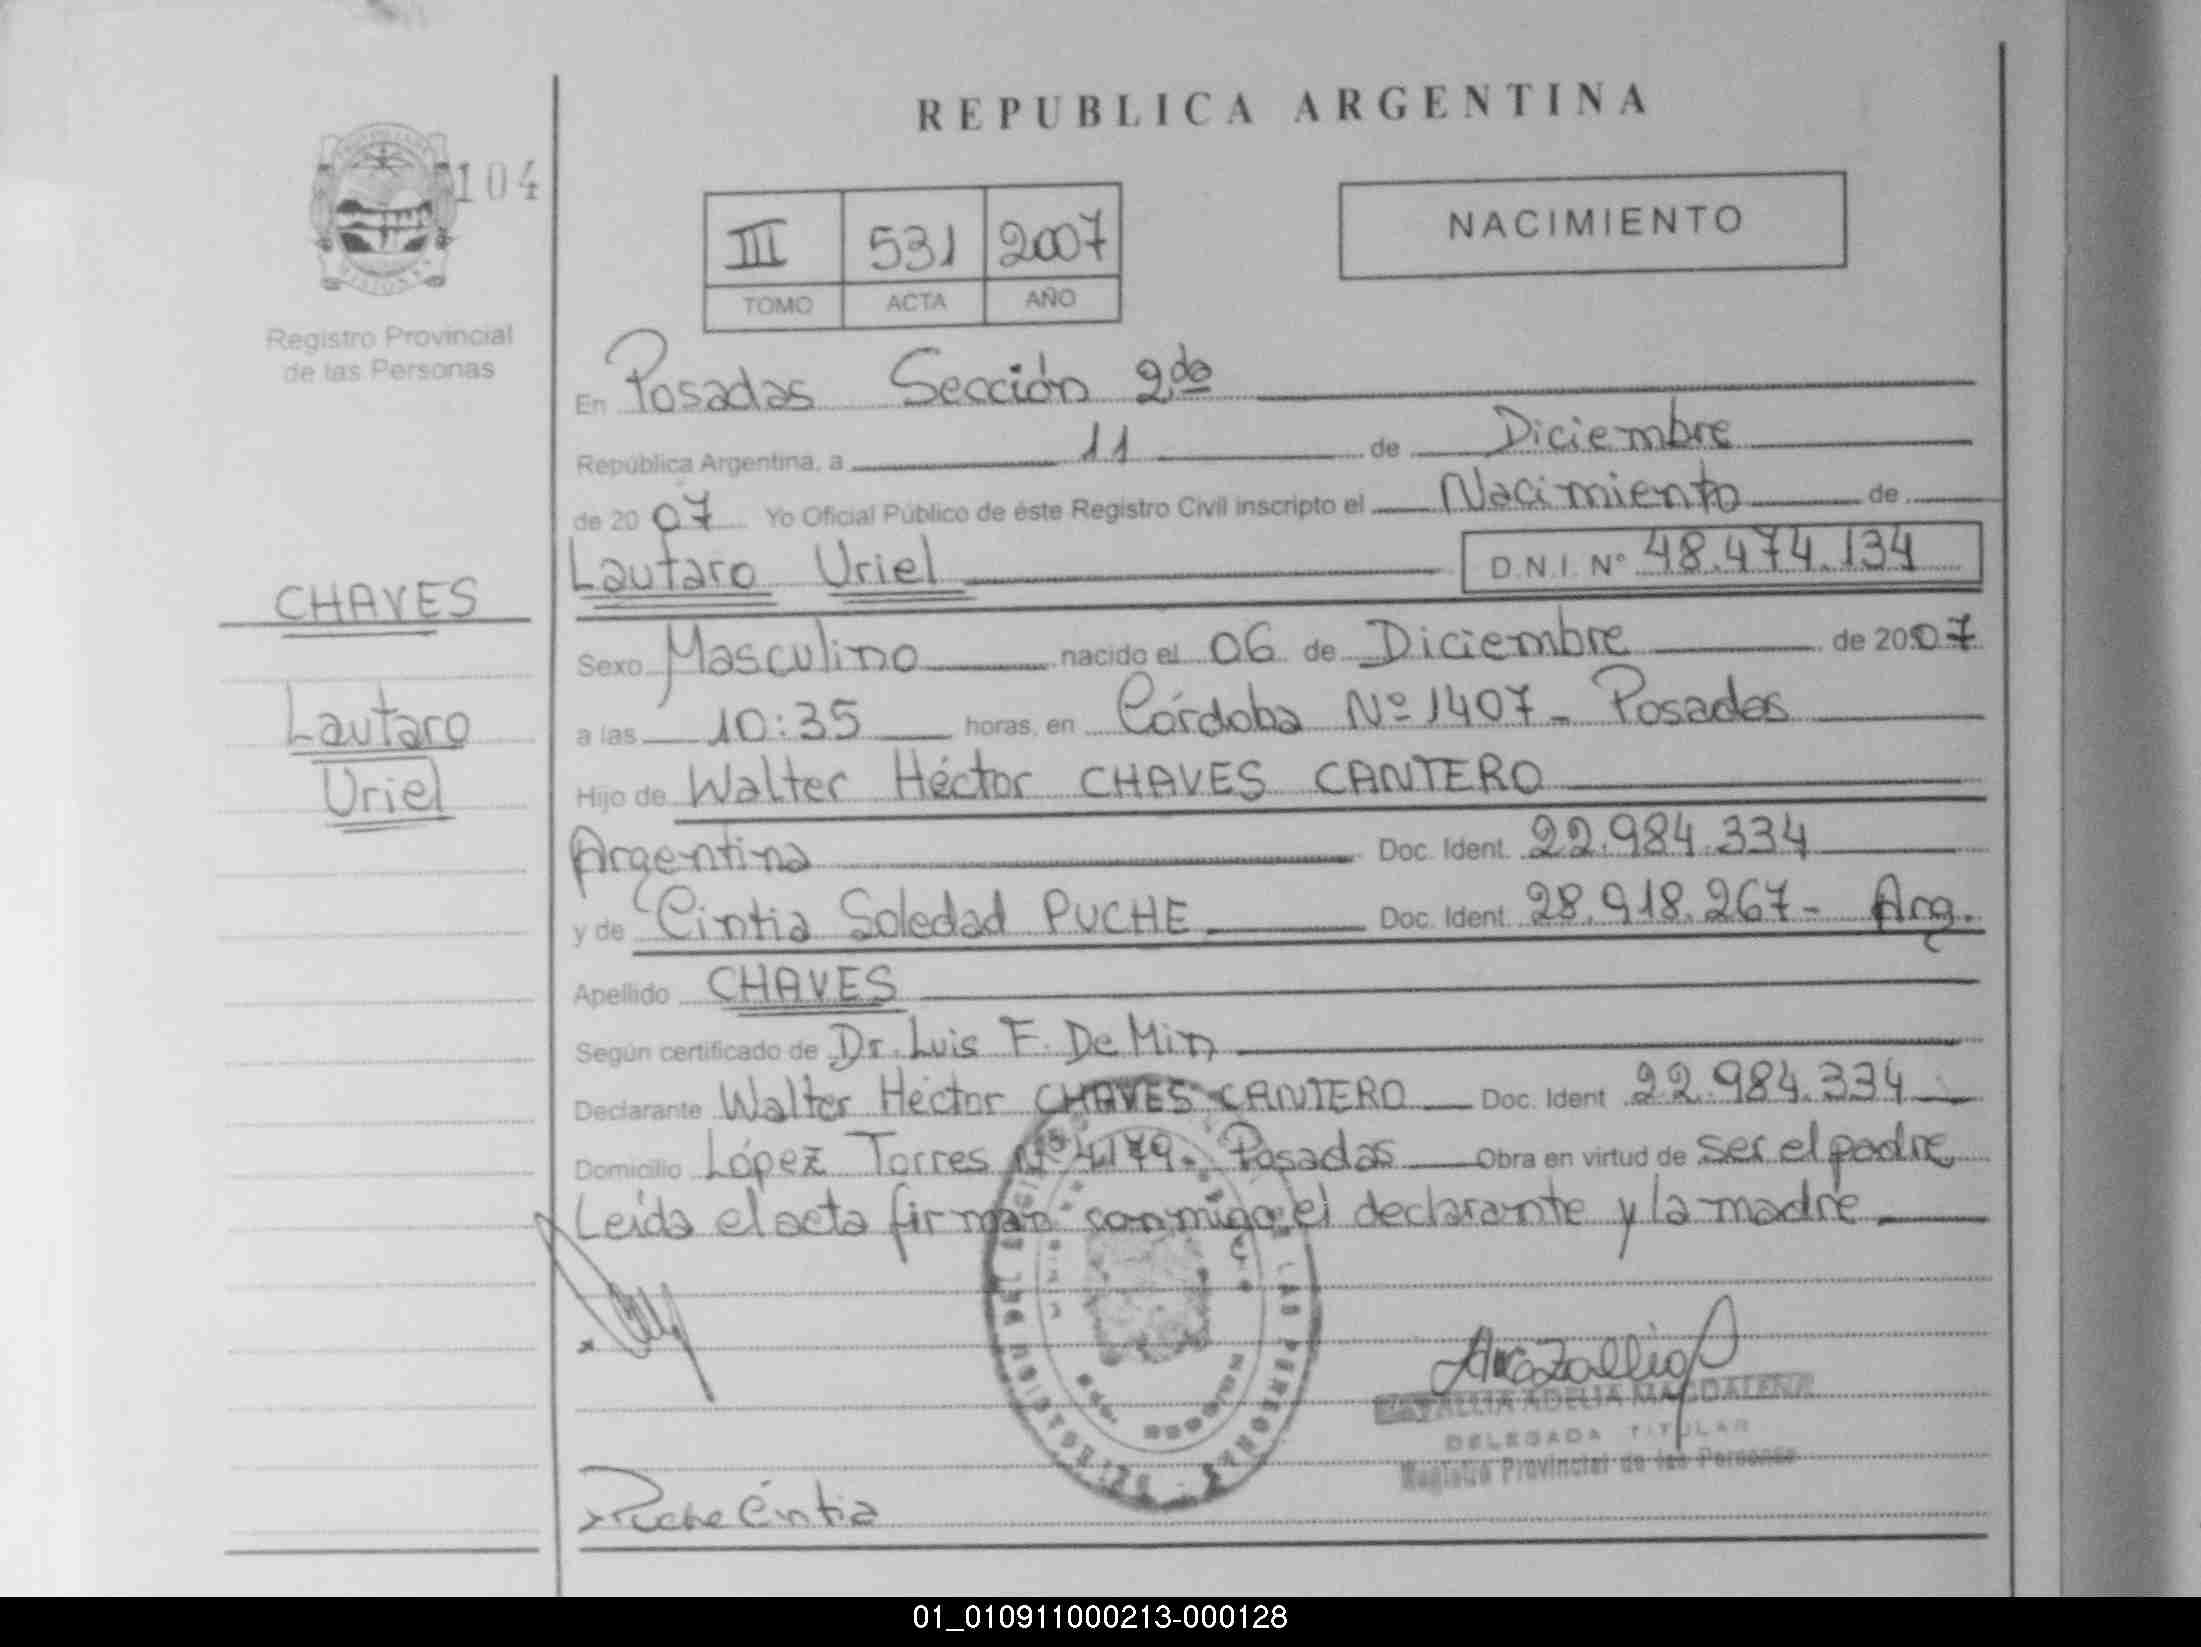 REPUBLICA ARGENTINA
104
III 531 2007
TOMO ACTA AÑO
NACIMIENTO
Registro Provincial
de las Personas
En Posadas Sección 2da
República Argentina, a 11 de Diciembre
de 2007 Yo Oficial Público de éste Registro Civil inscripto el Nacimiento de
Lautaro Uriel D.N.I. Nº 48.474.134
CHAVES
Lautaro
Uriel
Sexo Masculino nacido el 06 de Diciembre de 2007
a las 10:35 horas, en Córdoba Nº 1407 - Posadas
Hijo de Walter Héctor CHAVES CANTERO
Argentina Doc. Ident. 22.984.334
y de Cintia Soledad PUCHE Doc. Ident. 28.918.267 - Arg.
Apellido CHAVES
Según certificado de Dr. Luis F. De Min
Declarante Walter Héctor CHAVES CANTERO Doc. Ident 22.984.334
Domicilio López Torres Nº 4179. Posadas Obra en virtud de ser el padre
Leída el acta firman conmigo el declarante y la madre
ADELIA MAGDALENA
DELEGADA TITULAR
Registro Provincial de las Personas
Puche Cintia
01_010911000213-000128